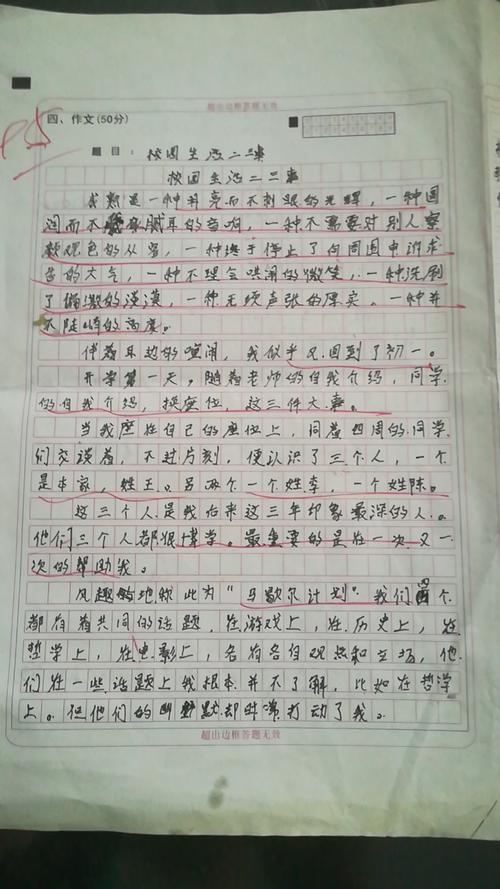 超出边框答题无效
四、作文(50分)
题目：校园生活二三事
校园生活二三事
成熟是一种明亮而不刺眼的光辉，一种圆
润而不腻耳的音响，一种不需要对别人察
颜观色的从容，一种终于停止了向周围申诉求
告的大气，一种不理会哄闹的微笑，一种洗刷
了偏激的淡漠，一种无须声张的厚实，一种并
不陡峭的高度。
伴着耳边的喧闹，我似乎又回到了初一。
开学第一天，随着老师的自我介绍，同学
的自我介绍，换座位，这三件大事。
当我座在自己的座位上，同着四周的同学
们交谈着，不过片刻，便认识了三个人，一个
是本家，姓王。另两个一个姓李，一个姓陈。
这三个人是我后来这三年印象最深的人。
他们三个人都很博学。最重要的是在一次又一
次的帮助我。
风趣地称此为“马歇尔计划”我们四个
都有着共同的话题，在游戏上，在历史上，在
哲学上，在电影上，各有各自观点和立场，他
们在一些话题上我根本并不了解，比如在哲学
上。但他们的幽默却时常打动了我。
超出边框答题无效